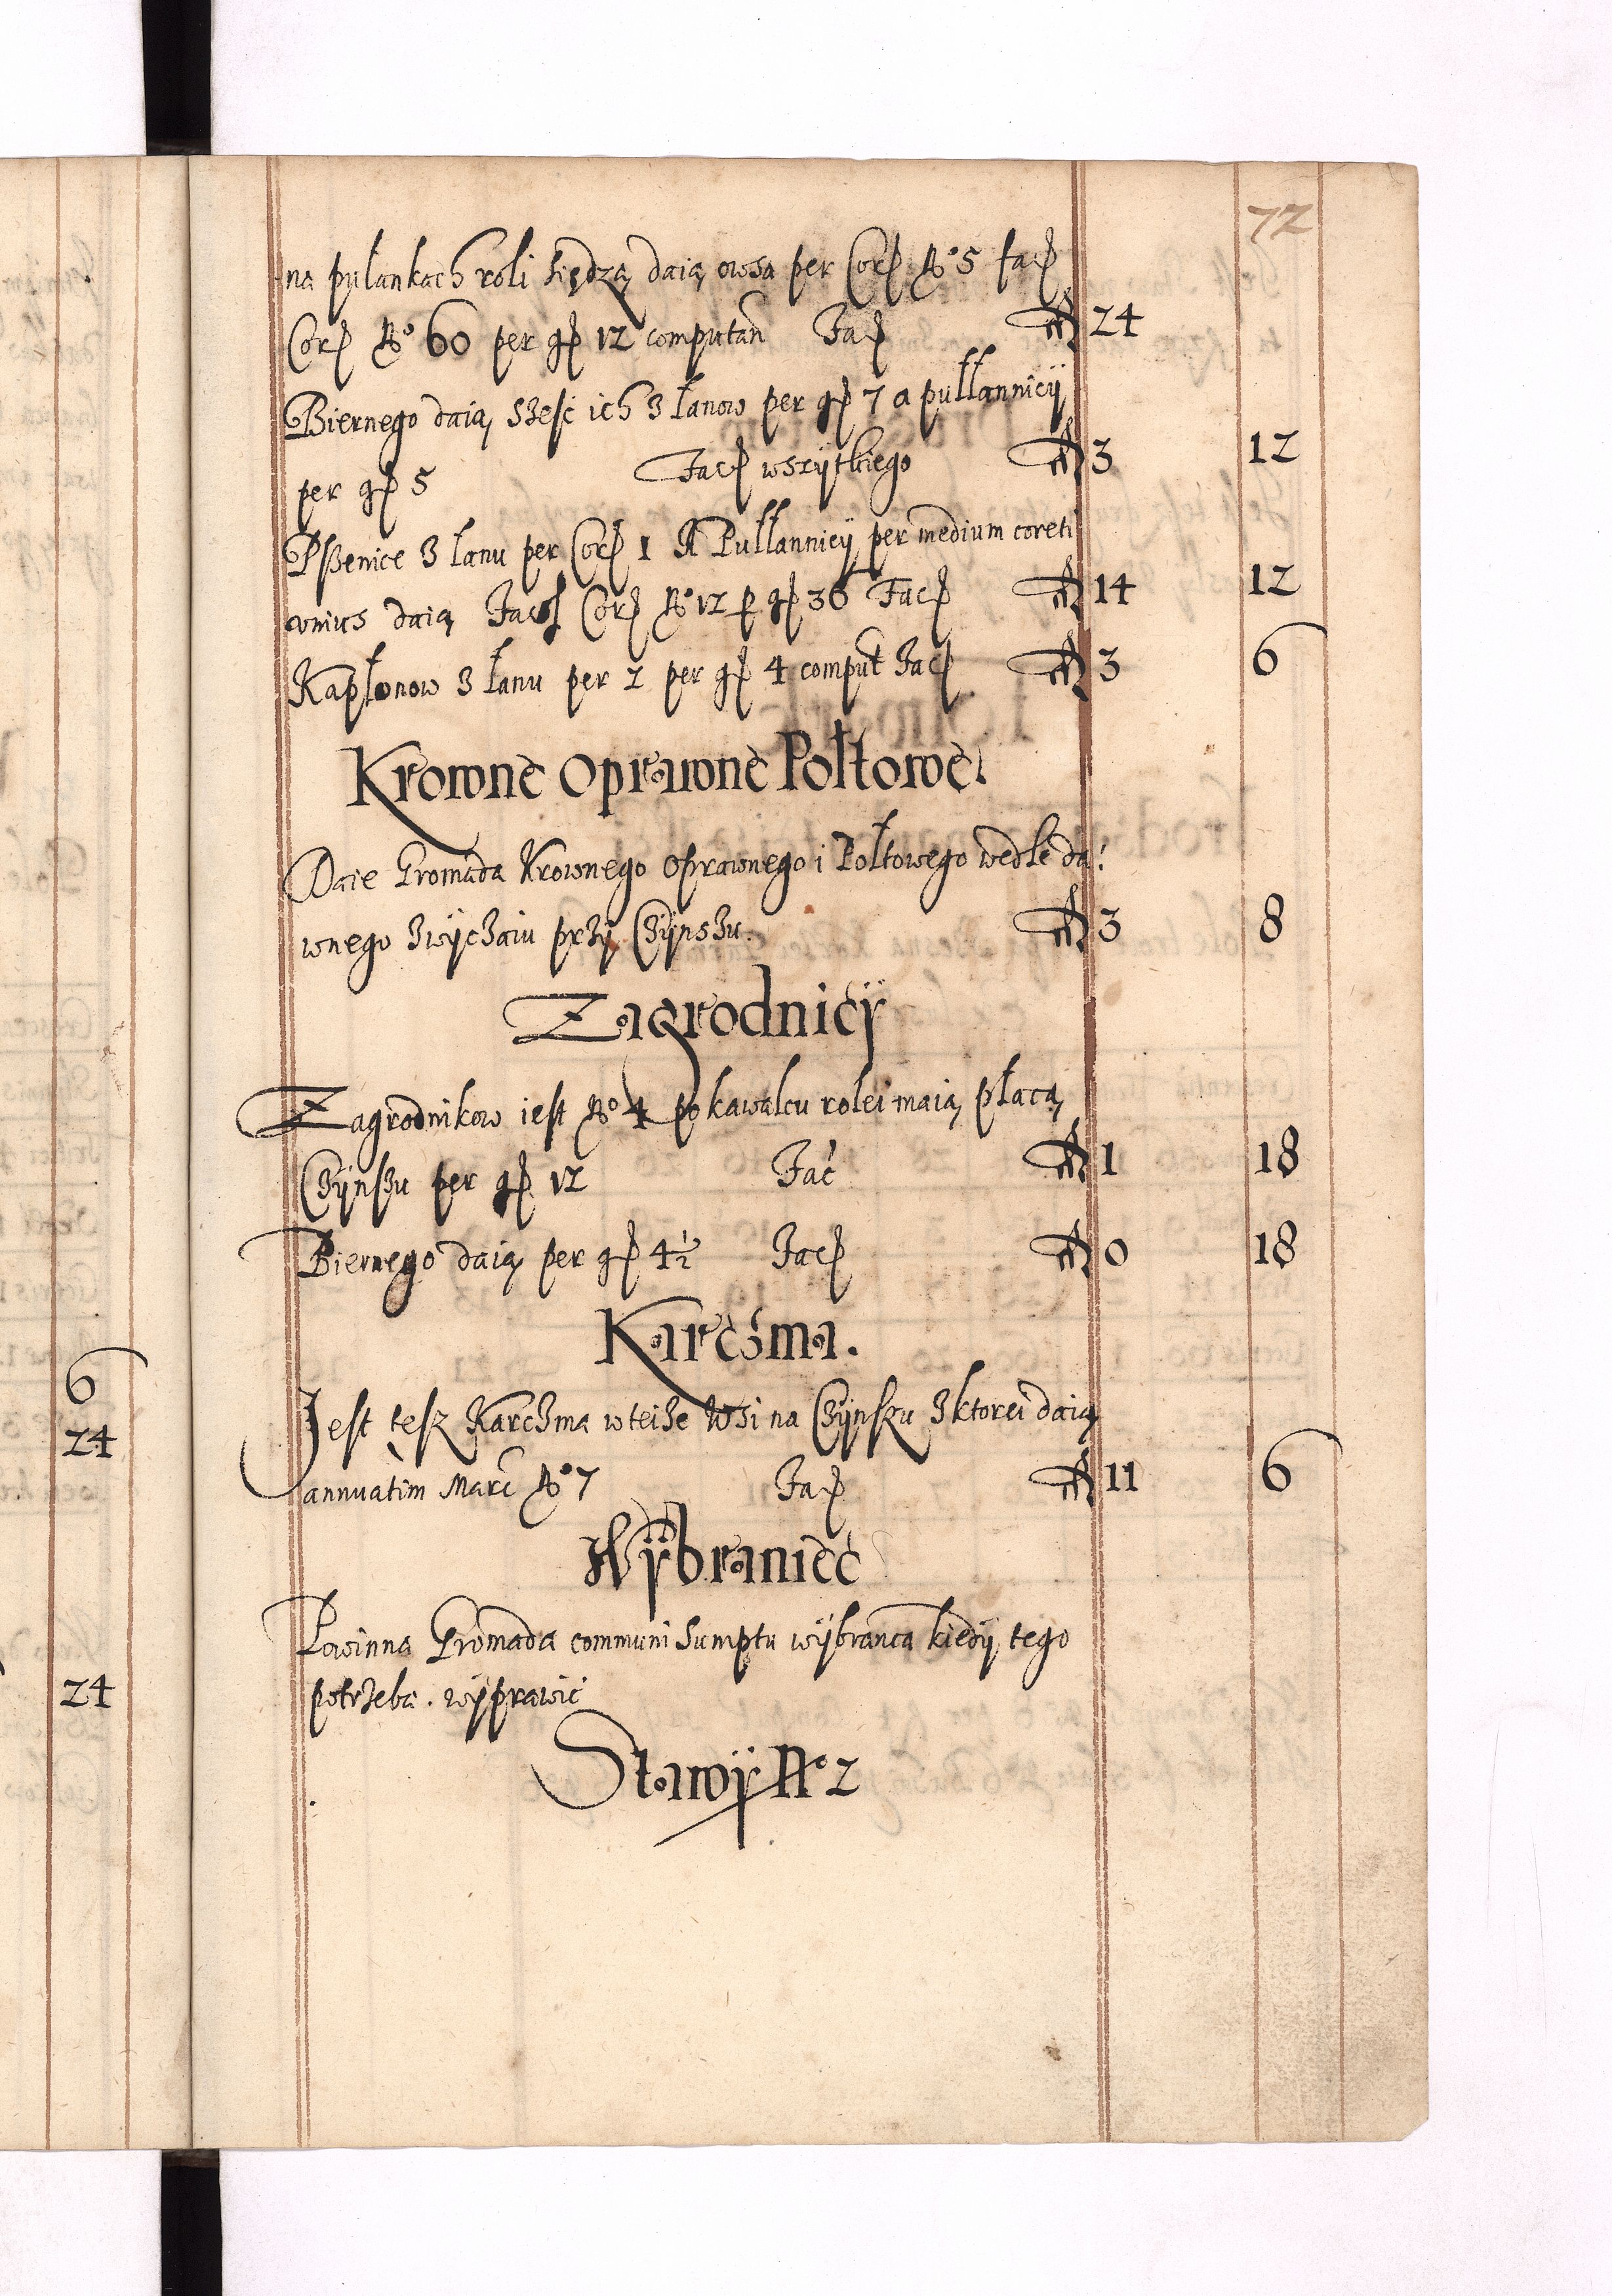 72
na pułankach roli siędzą daią owsa per Cor No 5 fac
Cor No 60 per gr 12 computan Fac fl 24
Biernego daią szesć ich z łanow per gr 7 a pułłannicÿ
per gr 5 Fac wszÿtkiego fl 3 12
Pszenice z łanu per Cor 1 A Pułłannicÿ per medium coreti
unius daią Fac Cor No 12 p gr 36 Fac fl 14 12
Kapłonow z łanu per 2 per gr 4 comput Fac fl 3 6
Krowne Oprawne Połtowe.
Daie Gromada Krownego Oprawnego i Połtowego wedle da:
wnego zwÿczaiu przÿ Czÿnszu. fl 3 8
Zagrodnicÿ
Zagrodnikow iest No 4 po kawalcu rolei maią płacą
Czÿnszu per gr 12 Fac fl 1 18
Biernego daią per gr 4½ Fac fl 0 18
Karczma.
Jest tesz Karczma w teize Wsi na Czÿnszu z ktorei daią
annuatim Marc No 7 Fac fl 11 6
Wÿbraniec
Powinna Gromada communi sumptu wÿbranca kiedÿ tego
potrzeba. wÿprawić
Stawÿ No 2
6
24
24